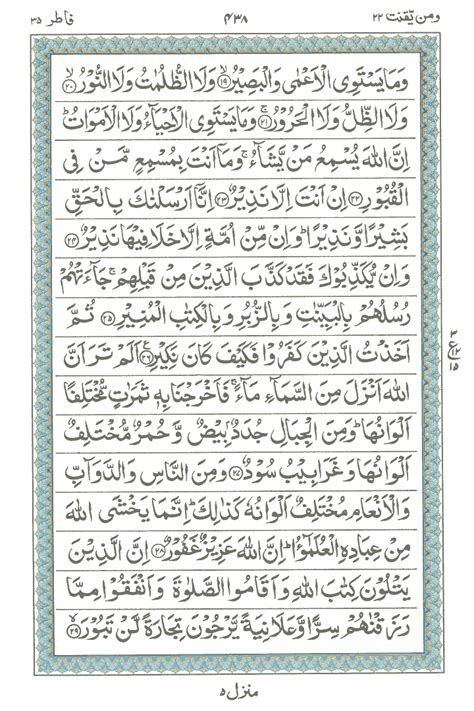 ومن يّقنت ٢٢ ٤٣٨ فاطر ٣٥
وَمَا يَسْتَوِى الْاَعْمٰى وَالْبَصِيْرُ ۙ﴿۱۹﴾ وَلَا الظُّلُمٰتُ وَلَا النُّوْرُ ۙ﴿۲۰﴾
وَلَا الظِّلُّ وَلَا الْحَرُوْرُ ۚ﴿۲۱﴾ وَمَا يَسْتَوِى الْاَحْيَآءُ وَلَا الْاَمْوَاتُ ؕ
اِنَّ اللّٰهَ يُسْمِعُ مَنْ يَّشَآءُ ۚ وَمَاۤ اَنْتَ بِمُسْمِعٍ مَّنْ فِى
الْقُبُوْرِ ﴿۲۲﴾ اِنْ اَنْتَ اِلَّا نَذِيْرٌ ﴿۲۳﴾ اِنَّاۤ اَرْسَلْنٰكَ بِالْحَقِّ
بَشِيْرًا وَّنَذِيْرًا ؕ وَاِنْ مِّنْ اُمَّةٍ اِلَّا خَلَا فِيْهَا نَذِيْرٌ ﴿۲۴﴾
وَاِنْ يُّكَذِّبُوْكَ فَقَدْ كَذَّبَ الَّذِيْنَ مِنْ قَبْلِهِمْ ۚ جَآءَتْهُمْ
رُسُلُهُمْ بِالْبَيِّنٰتِ وَبِالزُّبُرِ وَبِالْكِتٰبِ الْمُنِيْرِ ﴿۲۵﴾ ثُمَّ
اَخَذْتُ الَّذِيْنَ كَفَرُوْا فَكَيْفَ كَانَ نَكِيْرِ ﴿۲۶﴾ اَلَمْ تَرَ اَنَّ
اللّٰهَ اَنْزَلَ مِنَ السَّمَآءِ مَآءً ۚ فَاَخْرَجْنَا بِهٖ ثَمَرٰتٍ مُّخْتَلِفًا
اَلْوَانُهَا ؕ وَمِنَ الْجِبَالِ جُدَدٌۢ بِيْضٌ وَّحُمْرٌ مُّخْتَلِفٌ
اَلْوَانُهَا وَغَرَابِيْبُ سُوْدٌ ﴿۲۷﴾ وَمِنَ النَّاسِ وَالدَّوَآبِّ
وَالْاَنْعَامِ مُخْتَلِفٌ اَلْوَانُهٗ كَذٰلِكَ ؕ اِنَّمَا يَخْشَى اللّٰهَ
مِنْ عِبَادِهِ الْعُلَمٰٓؤُا ؕ اِنَّ اللّٰهَ عَزِيْزٌ غَفُوْرٌ ﴿۲۸﴾ اِنَّ الَّذِيْنَ
يَتْلُوْنَ كِتٰبَ اللّٰهِ وَاَقَامُوا الصَّلٰوةَ وَاَنْفَقُوْا مِمَّا
رَزَقْنٰهُمْ سِرًّا وَّعَلَانِيَةً يَّرْجُوْنَ تِجَارَةً لَّنْ تَبُوْرَ ۙ﴿۲۹﴾
٣
ع ١٢
١٥
منزل ٥